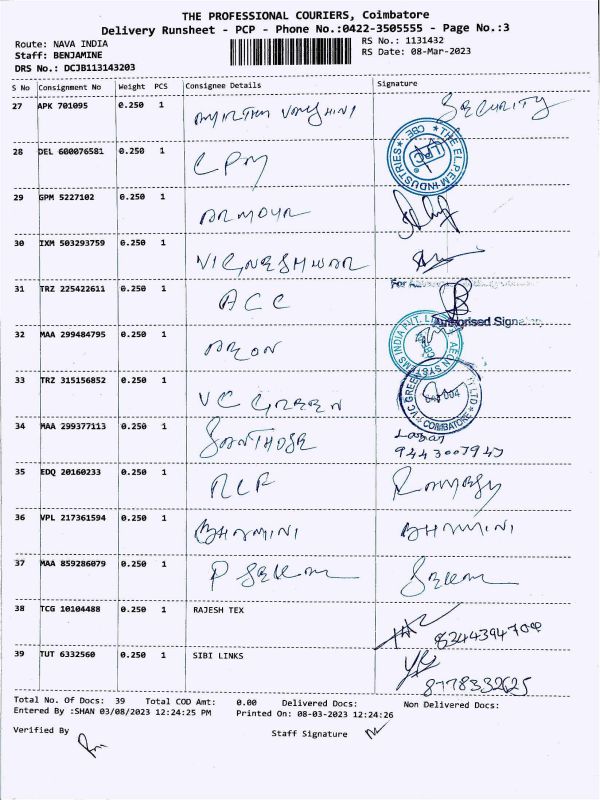 THE PROFESSIONAL COURIERS, Coimbatore
Delivery Runsheet - PCP - Phone No.:0422-3505555 - Page No.:3
Route: NAVA INDIA RS No.: 1131432
Staff: BENJAMINE RS Date: 08-Mar-2023
DRS No.: DCJB113143203
S No Consignment No Weight PCS Consignee Details Signature
27 APK 701095 0.250 1 SECURITY
28 DEL 600076581 0.250 1 CPM THE EL.PE.EM-INDUSTRIES CBE LPC
29 GPM 5227102 0.250 1 ARMOUR
30 IXM 503293759 0.250 1 VIGNESHWAR
31 TRZ 225422611 0.250 1 ACC For Authorised Signa
32 MAA 299484795 0.250 1 AEON AEON SYSTEMS INDIA PVT. LTD CBE
33 TRZ 315156852 0.250 1 VC GREEN VC GREEN COIMBATORE
34 MAA 299377113 0.250 1 SANTHOSH
9443007947
35 EDQ 20160233 0.250 1 RAMESH
36 VPL 217361594 0.250 1 BHAMINI BHAMINI
37 MAA 859286079 0.250 1 P SEKAR SEKAR
38 TCG 10104488 0.250 1 RAJESH TEX
39 TUT 6332560 0.250 1 SIBI LINKS 8778332625
Total No. Of Docs: 39 Total COD Amt: 0.00 Delivered Docs: Non Delivered Docs:
Entered By :SHAN 03/08/2023 12:24:25 PM Printed On: 08-03-2023 12:24:26
Verified By Staff Signature